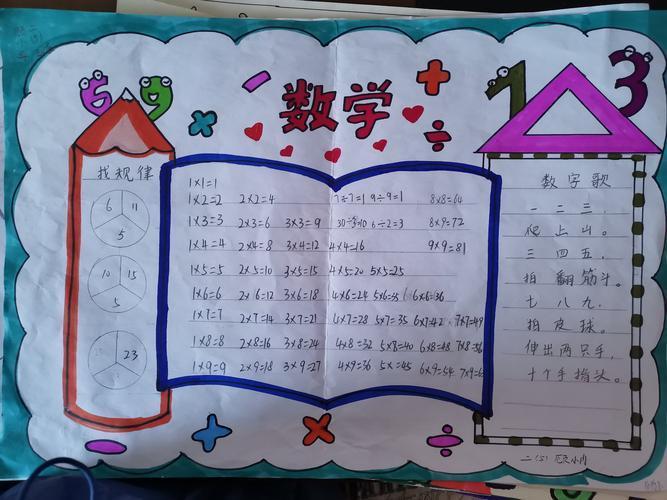 6 9
数学
1 3
找规律
6 11
5
10 15
5
23
1×1=1
1×2=2 2×2=4 7÷7=1 9÷9=1 8×8=64
1×3=3 2×3=6 3×3=9 6÷2=3 8×9=72
1×4=4 2×4=8 3×4=12 4×4=16 9×9=81
1×5=5 2×5=10 3×5=15 4×5=20 5×5=25
1×6=6 2×6=12 3×6=18 4×6=24 5×6=35 6×6=36
1×7=7 2×7=14 3×7=21 4×7=28 5×7=35 6×7=42 7×7=49
1×8=8 2×8=16 3×8=24 4×8=32 5×8=40 6×8=48 7×8=56
1×9=9 2×9=18 3×9=27 4×9=36 5×=45 6×9=54 7×9=6
数字歌
一二三.
爬上山。
三四五.
拍翻筋斗。
七八九.
拍皮球。
伸出两只手,
十个手指头。
二(5)